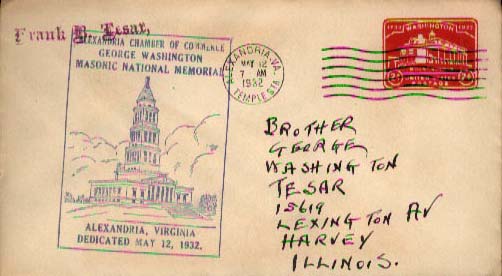 Frank B. Tesar,
ALEXANDRIA CHAMBER OF COMMERCE
GEORGE WASHINGTON
MASONIC NATIONAL MEMORIAL
ALEXANDRIA, VIRGINIA
DEDICATED MAY 12, 1932.
ALEXANDRIA, VA.
MAY 12
7 AM
1932
TEMPLE STA.
1732 WASHINGTON 1932
UNITED STATES
POSTAGE
BROTHER
GEORGE
WASHINGTON
TESAR
15619
LEXINGTON AV
HARVEY
ILLINOIS.